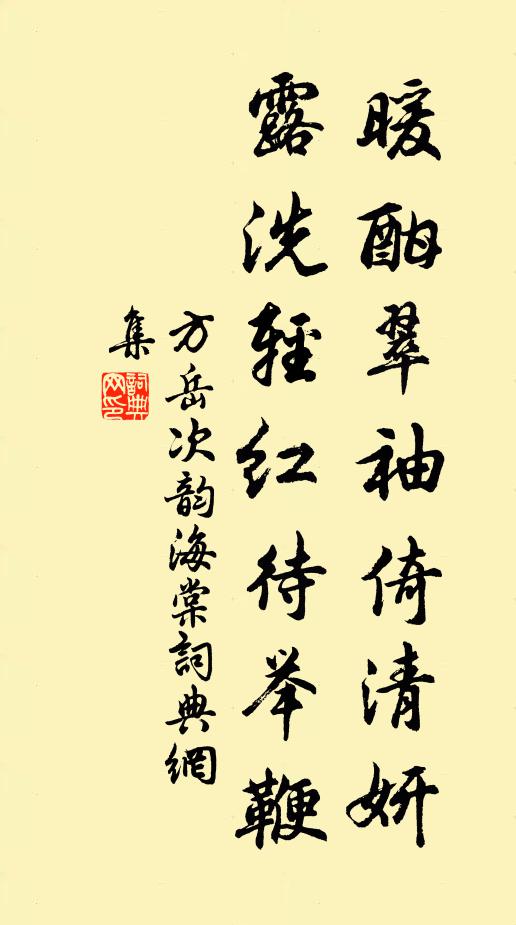 暖酣翠袖倚清妍
露洗轻红待举鞭
方岳次韵海棠詞典網
集
詞典
网印